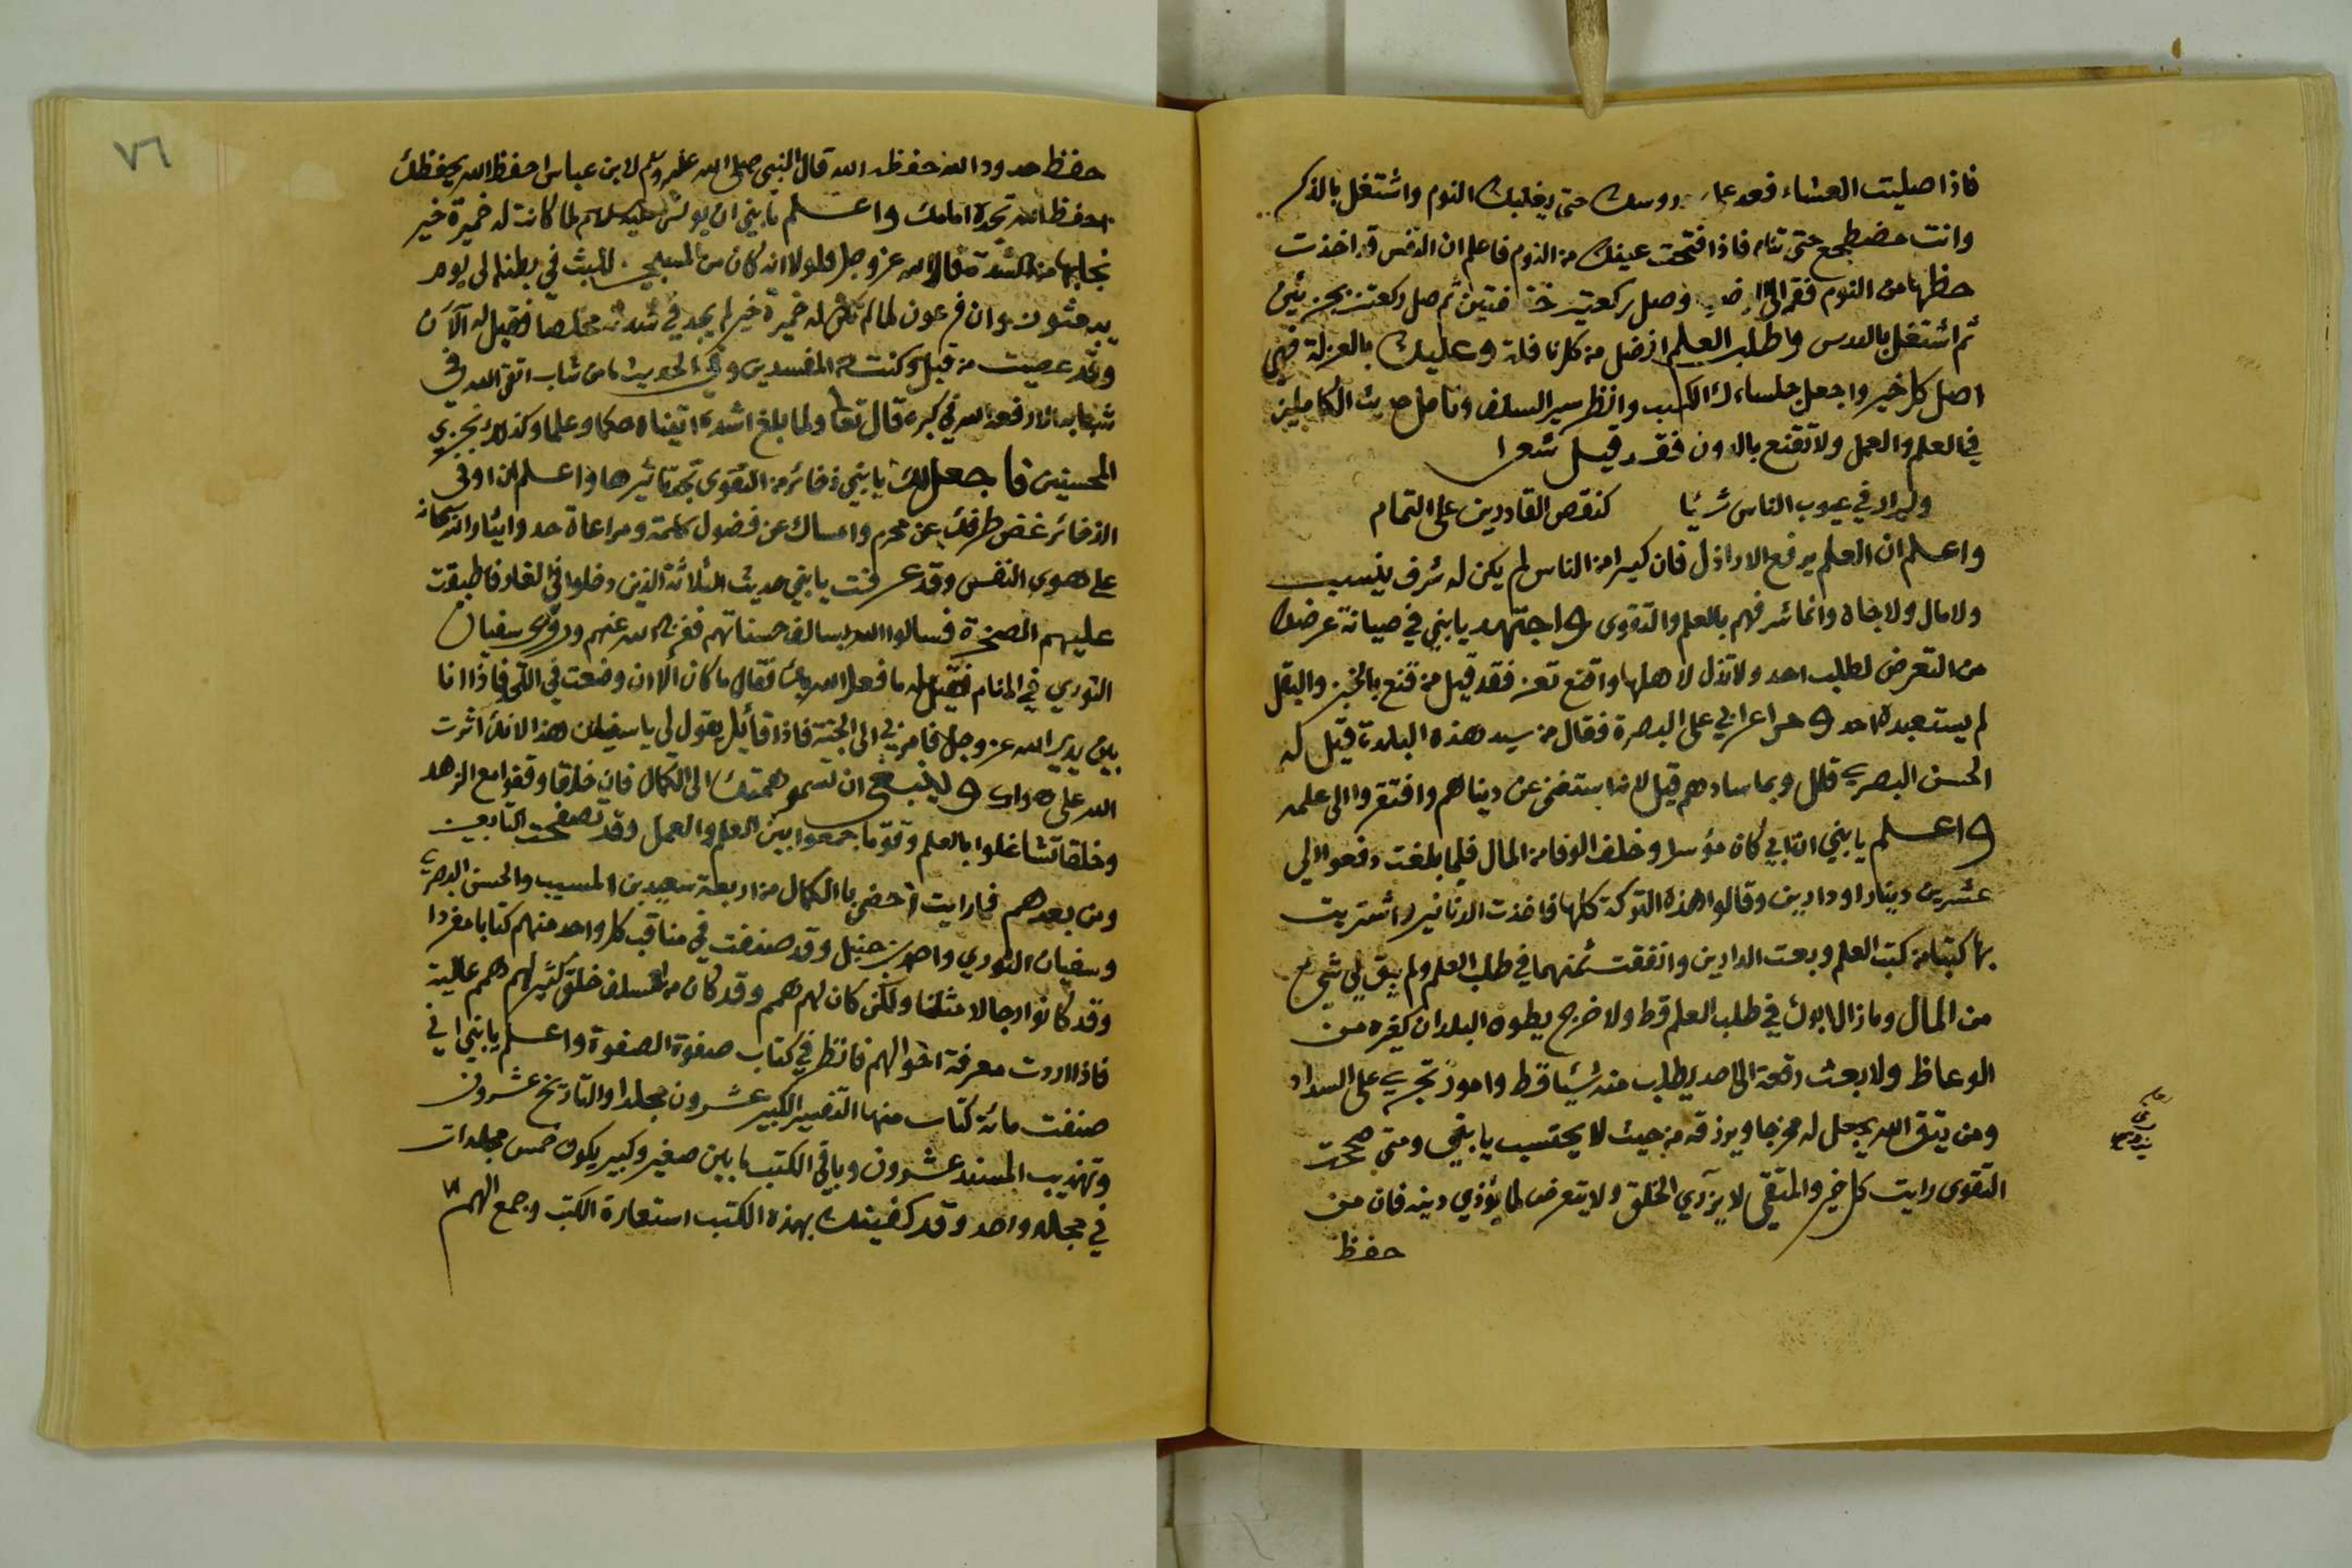 فاذا صليت العشاء فعد دروسك حتى يغلبك النوم واشتغل بالذكر
وانت مضطجع حتى تنام فاذا افتحت عينك من النوم فاعلم ان النفس قد اخذت
حظها من النوم فقم الى وصل ركعتين خفيفتين ثم صل ركعتين بجزئين
ثم اشتغل بالدرس واطلب العلم افضل من كل نافلة وعليك بالعزلة فهي
اصل كل خير واجعل جلساءك الكتب وانظر سير السلف وتامل حديث الكاملين
في العلم والعمل ولا تقنع بالدون فقد قيل شعرا
ولم ار في عيوب الناس شيئا كنقص القادرين على التمام
واعلم ان العلم يرفع الاراذل فان كثيرا من الناس لم يكن له شرف بنسب
ولا مال ولا جاه وانما شرفهم بالعلم والتقوى واجتهد يا بني في صيانة عرضك
من التعرض لطلب احد ولا تذل لاهلها واقنع تعز فقد قيل من قنع بالخبز والبقل
لم يستعبده احد و مر اعرابي على البصرة فقال من سيد هذه البلدة قيل له
الحسن البصري قال وبما سادهم قيل لانه استغنى عن دنياهم وافتقروا الى علمه
واعلم يا بني ان ابي كان مؤسرا وخلف الوفا من المال فلما بلغت دفعوا الي
عشرين دينارا ودارين وقالوا هذه التركة كلها فاخذت الدنانير واشتريت
بها كتبا من كتب العلم وبعت الدارين وانفقت ثمنهما في طلب العلم ولم يبق لي شيء
من المال وما زال ابوك في طلب العلم قط ولا خرج يطوف البلدان كغيره من
الوعاظ ولا بعث رقعة الى احد يطلب منه شيئا قط وامور تجري على السداد
ومن يتق الله يجعل له مخرجا ويرزقه من حيث لا يحتسب يا بني ومتى صحت
التقوى رايت كل خير والمتقي لا يرآي الخلق ولا يتعرض لما يؤذي دينه فان من
حفظ
٧٦
حفظ حدود الله حفظه الله قال النبي صلى الله عليه وسلم لابن عباس احفظ الله يحفظك
احفظ الله تجده امامك واعلم يا بني ان يونس عليه السلام لما كانت له خميرة خير
نجا بها من الشدة قال الله عز وجل فلولا انه كان من المسبحين للبث في بطنه الى يوم
يبعثون وان فرعون لما لم تكن له خميرة خير لم يجد في شدته مخلصا فقيل له الآن
وقد عصيت من قبل وكنت من المفسدين وفي الحديث ما من شاب اتقى الله في
شبابه الا رفعه الله في كبره قال تعا ولما بلغ اشده اتيناه حكما وعلما وكذلك نجزي
المحسنين فاجعل لك يا بني ذخائر من التقوى تجد تاثيرها واعلم ان اوفى
الذخائر غض طرفك عن محرم وامساك عن فضول كلمة ومراعاة حد وايثار الله سبحانه
على هوى النفس وقد عرفت يا بني حديث الثلاثة الذين دخلوا في الغار فاطبقت
عليهم الصخرة فسالوا الله بسالف حسناتهم ففرج الله عنهم ورؤي سفيان
الثوري في المنام فقيل له ما فعل الله بك فقال ما كان الا ان وضعت في اللحد فاذا انا
بين يدي الله عز وجل فامر بي الى الجنة فاذا قائل يقول لي يا سفيان هذا لانك اثرت
الله على هواك و لينبغي ان تسمو همتك الى الكمال فان خلقا وقفوا مع الزهد
وخلقا تشاغلوا بالعلم وقوما جمعوا بين العلم والعمل وقد تصفحت التابعين
ومن بعدهم فما رايت احضى بالكمال من اربعة سعيد بن المسيب والحسن البصري
وسفيان الثوري واحمد بن حنبل وقد صنفت في مناقب كل واحد منهم كتابا مفردا
وقد كانوا رجالا مثلنا ولكن كان لهم همم وقد كان من السلف خلق كثير لهم همم عالية
فاذا اردت معرفة احوالهم فانظر في كتاب صفوة الصفوة واعلم يا بني اني
صنفت مائة كتاب منها التفسير الكبير عشرون مجلدا والتاريخ عشرون
وتهذيب المسند عشرون وباقي الكتب ما بين صغير وكبير يكون خمس مجلدات
في مجلد واحد وقد كفيتك بهذه الكتب استعارة الكتب وجمع الهم